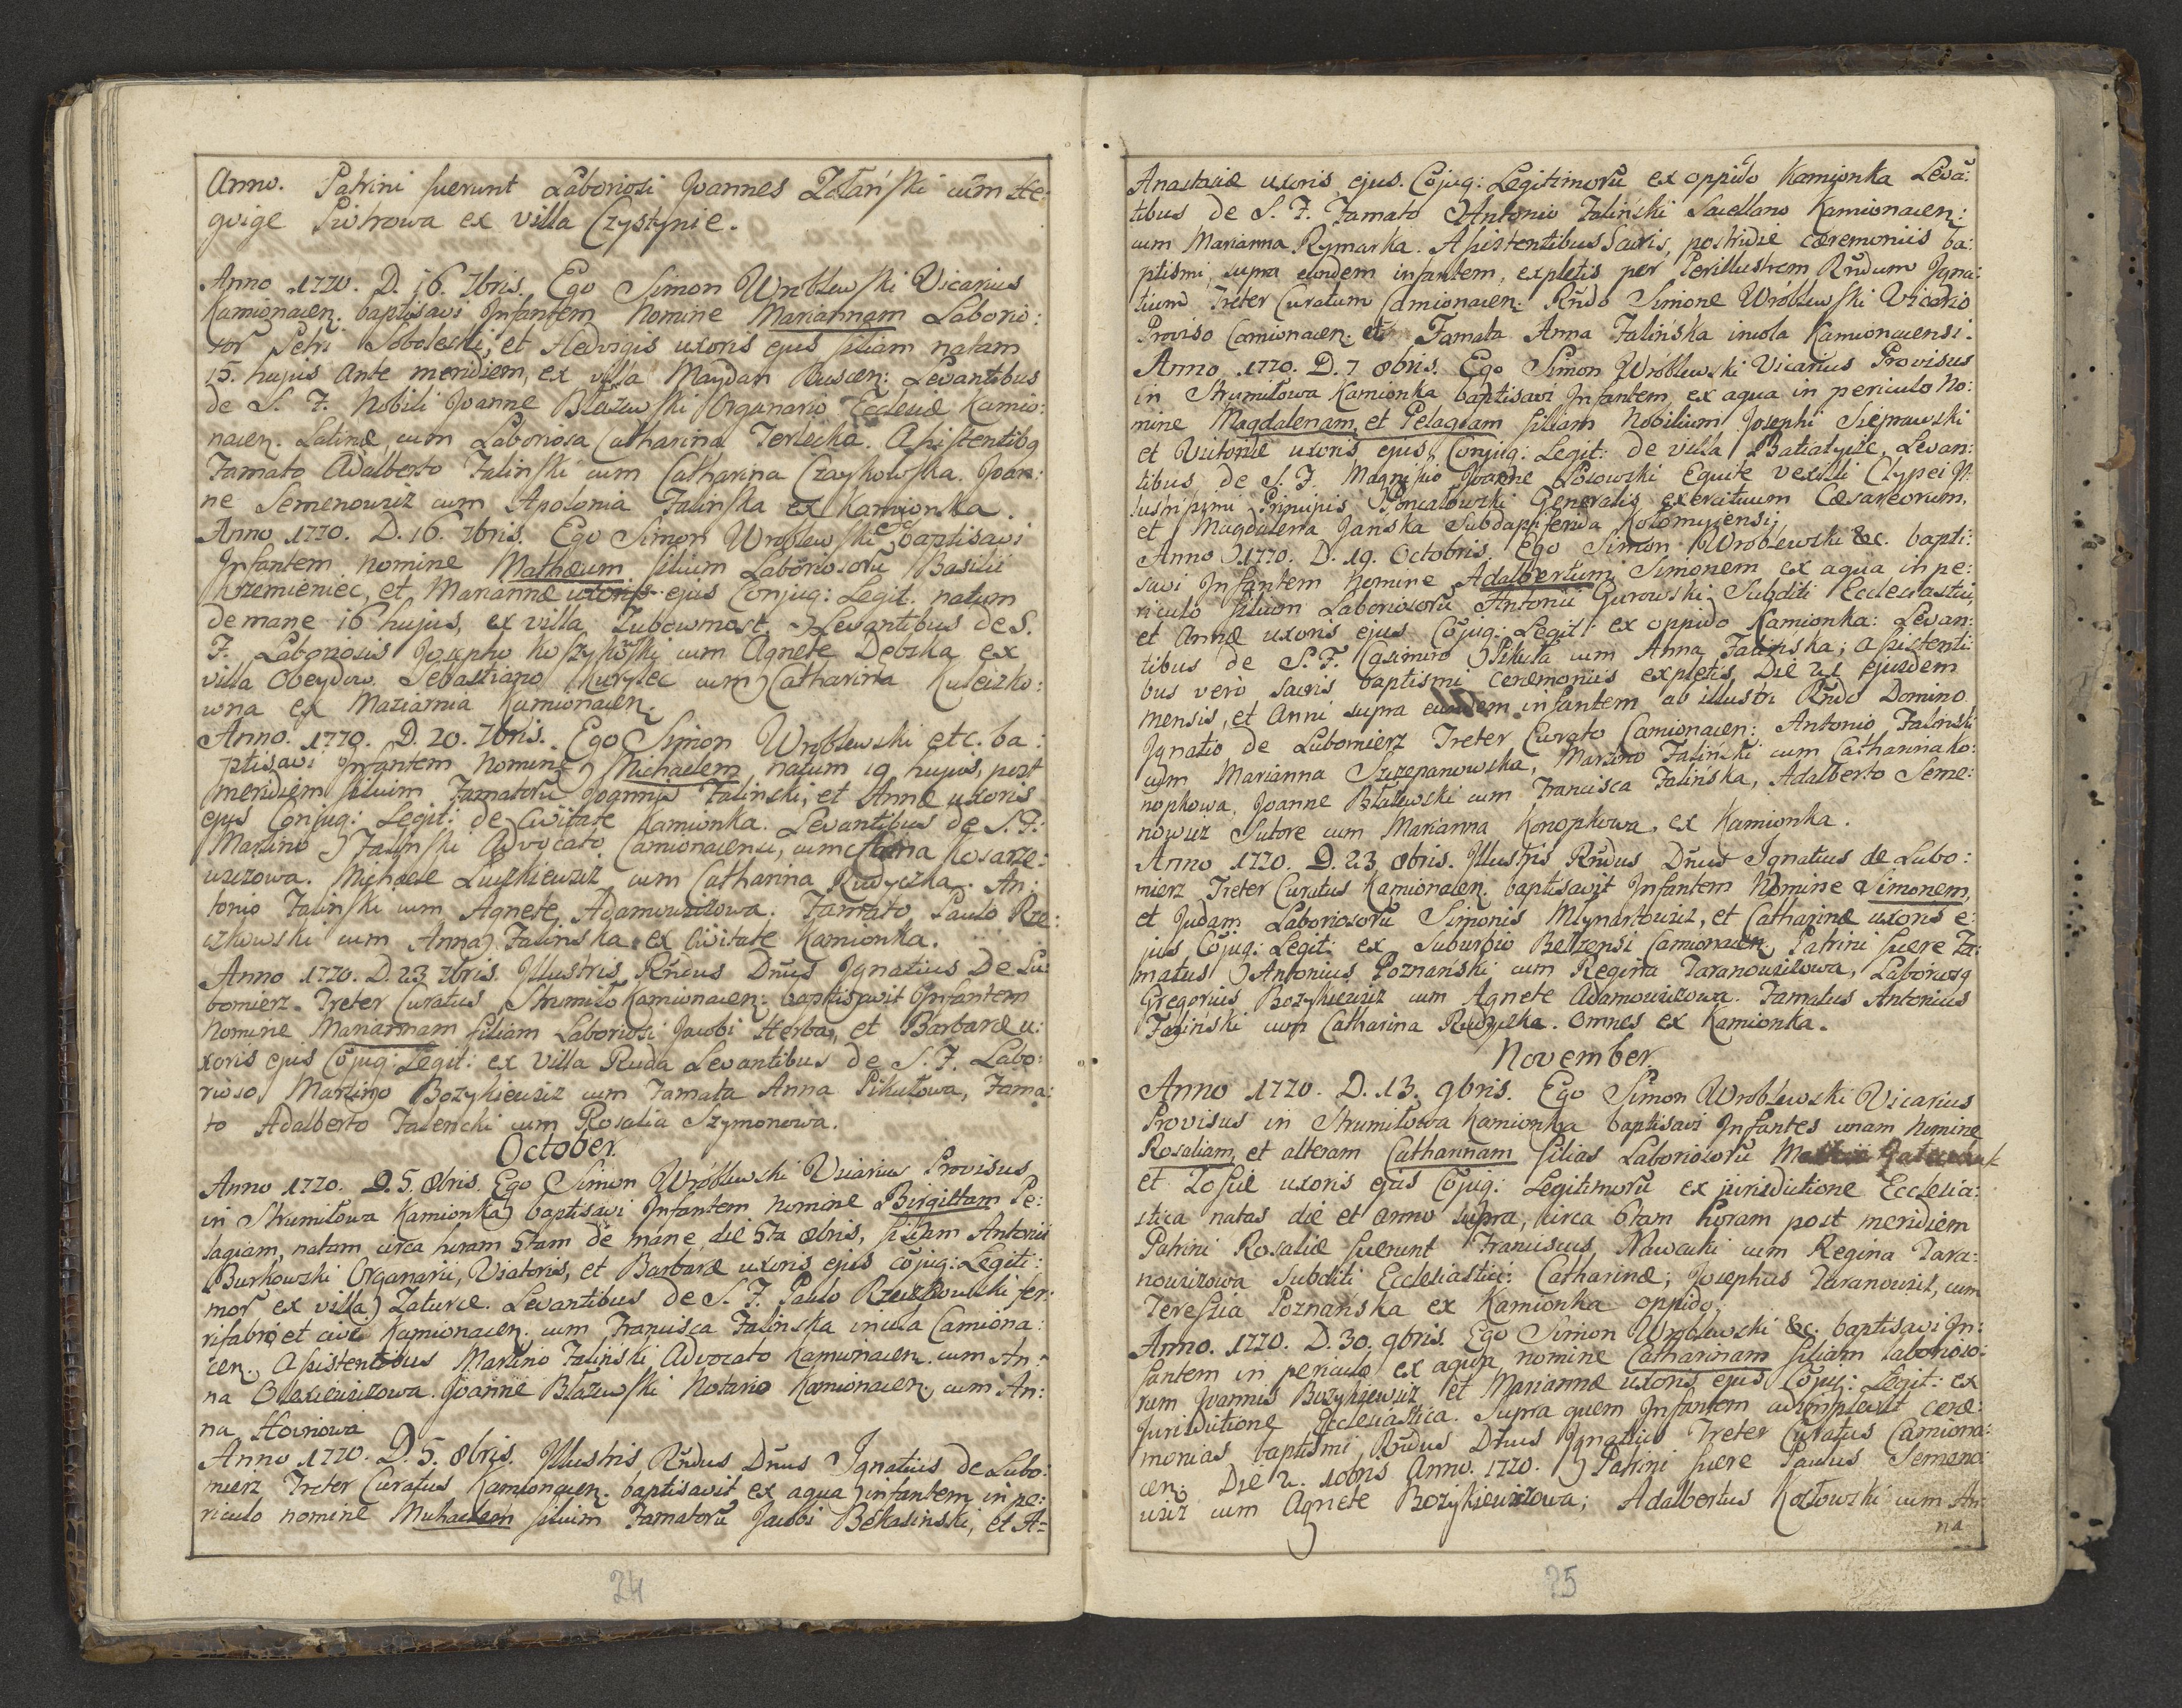 Anno. Patrini fuerunt Laboriosi Joannes Zołański cum He:
gvige Piotrowa ex villa Czystynie.
Anno 1770. D. 16. 7bris. Ego Simon Wroblewski Vicarius
Kamionacen. baptisavi Infantem Nomine Mariannam Laborio:
sor Petri Soboleski, et Hedvigis uxoris ejus filiam natam
15. hujus ante meridiem, ex villa Maydan Ruscen: Levantibus
de S. F. Nobili Joanne Błażewski Organario Ecclesiæ Kamio:
nacen. Latinæ, cum Laboriosa Catharina Terlecka. Assistentibq
Famato Adalberto Falinski cum Catharina Czaykowska. Joan:
ne Semenowicz cum Apolonia Falinska ex Kamionka.
Anno 1770. D. 16. 7bris. Ego Simon Wroblewski etc baptisavi
Infantem nomine Mathæum filium Laboriosorũ Basilii
Krzemieniec, et Mariannæ uxoris ejus Conjug: Legit. natum
de mane 16 hujus, ex villa Zubowmost. Levantibus de S.
F. Laboriosis Josepho Koszykowski cum Agnete Debska ex
villa Obeydow. Sebastiano Kurylec cum Catharina Kuleczko:
wna ex Maziarnia Kamionacen.
Anno. 1770. D. 20. 7bris. Ego Simon Wroblewski etc. ba:
ptisavi Infantem Nomine Michaelem, natum 19 hujus, post
meridiem filium Famatorũ Joannis Falinski, et Annæ uxoris
ejus Conjug: Legit: de Civitate Kamionka. Levantibus de S. F.
Martino Falinski Advocato Camionacensi, cum Anna Kosarze:
wiczowa. Michaele Luczkiewicz cum Catharina Rudyczka. An:
tonio Falinski cum Agnete Adamowiczowa. Famato Paulo Rze:
czkowski cum Anna Falinska ex Civitate Kamionka.
Anno 1770. D. 23 7bris. Illustris Rñdus Dñus Ignatius De Lu:
bomierz Treter Curatus Strumiło Kamionacen: baptisavit Infantem
Nomine Mariannam filiam Laboriosi Jacobi Herba, et Barbaræ u:
xoris ejus Cõjug: Legit: ex Villa Ruda Levantibus de S. F. Labo:
rioso, Martino Bozykiewicz cum Famata Anna Pikułowa, Fama:
to Adalberto Falencki cum Rosalia Szymonowa.
October.
Anno 1770. D. 5. 8bris. Ego Simon Wróblewski Vicarius Provisus
in Strumiłowa Kamionka baptisavi Infantem nomine Birgittam Pe:
lagiam, natam circa horam 5tam de mane, die 5ta 8bris, filiam Antonii
Burkowski Organarii, Viatoris, et Barbaræ uxoris ejus cõjug: Legiti:
mor ex villa Zaturce. Levantibus de S. F. Paulo Rzeczkowski fer:
rifabro, et cive Kamionacen. cum Francisca Falinska incola Camiona:
cen. Assistentibus Martino Falinski Advocato Kamionacen. cum An:
na Olexiewiczowa. Joanne Błażewski Notario Kamionacen, cum An:
na Hoinowa
Anno 1770. D. 5. 8bris. Illustris Rñdus Dñus Ignatius de Lubo:
mierz Treter Curatus Kamionacen. baptisavit ex aqua infantem in pe:
riculo nomine Michaelem filium Famatorũ Jacobi Bekasinski, et A=
24
Anastasiæ uxoris ejus. Cõjug: Legitimorũ ex oppido Kamionka Levã:
tibus de S. F. Famato Antonio Falinski Sacellano Kamionacen:
cum Marianna Rymarka. Assistentibus Sacris, postridie cæremoniis ba:
ptismi, supra eundem infantem, expletis per Perillustrem Rñdum Igna:
tium Treter Curatum Camionacen. Rñdo Simone Wróblewski Vicario
Proviso Camionacen. et Famata Anna Falińska incola Kamionacensi.
Anno 1770. D. 7 8bris. Ego Simon Wróblewski Vicarius Provisus
in Strumiłowa Kamionka baptisavi Infantem, ex aqua in periculo No:
mine Magdalenam, et Pelagiam filiam Nobilium Josephi Sieprawski
et Victoriæ uxoris ejus, Conjug: Legit: de villa Batiatycze, Levan:
tibus de S. F. Magnifico Joanne Łosowski Equite vexilli Clypei Il:
lustrissimi Principis Poniatowski Generalis exercituum Cæsareorum,
et Magdalena Janska Subdapiferida Kołomyiensi;
Anno 1770. D. 19. Octobris. Ego Simon Wroblewski &c. bapti:
savi Infantem Nomine Adalbertum Simonem ex aqua in pe:
riculo filium Laboriosorũ Antonii Gurowski Subditi Ecclesiastici,
et Annæ uxoris ejus Cõjug: Legit: ex oppido Kamionka: Levan:
tibus de S. F. Casimiro Pikuła cum Anna Falińska; Assistenti:
bus verò sacris baptismi ceremoniis expletis, Die 21 ejusdem
mensis, et Anni supra eundem infantem ab illustri Rñdo Domino
Ignatio de Lubomierz Treter Curato Camionacen: Antonio Falinski
cum Marianna Szczepanowska, Martino Faliński cum Catharina Ko:
nopkowa, Joanne Błażewski cum Francisca Falińska, Adalberto Seme:
nowicz Sutore cum Marianna Konopkowa, ex Kamionka.
Anno 1770. D. 23 8bris. Illustris Rñdus Dñus Ignatius de Lubo:
mierz Treter Curatus Kamionacen. baptisavit Infantem Nomine Simonem,
et Judam Laboriosorũ Simonis Młynartowicz, et Catharinæ uxoris e:
jus Cõjug: Legit: ex Suburbio Belzensi Camionacen. Patrini fuere Fa:
matus Antonius Poznański cum Regina Taranowiczowa, Laboriosq
Gregorius Bozykiewicz cum Agnete Adamowiczowa. Famatus Antonius
Faliński cum Catharina Rudyczka. Omnes ex Kamionka.
November.
Anno 1770. D. 13. 9bris. Ego Simon Wroblewski Vicarius
Provisus in Strumiłowa Kamionka baptisavi Infantes unam nomine
Rosaliam, et alteram Catharinam filias Laboriosorũ
et Zofiæ uxoris ejus Cõjug: Legitimorũ ex jurisdictione Ecclesia:
stica natas die et anno supra, circa 6tam horam post meridiem
Patrini Rosaliæ fuerunt Franciscus Nawacki cum Regina Tara:
nowiczowa Subditi Ecclesiastici: Catharinæ; Josephus Taranowicz, cum
Teressia Poznanska ex Kamionka oppido;
Anno. 1770. D. 30. 9bris. Ego Simon Wroblewski &c. baptisavi In:
fantem in periculo ex aqua, nomine Catharinam filiam Laborioso:
rum Joannis Bozykiewicz et Mariannæ uxoris ejus Cõjug: Legit: ex
Jurisdictione Ecclesiastica. Supra quem Infantem adimplevit cere:
monias baptismi, Rñdus Dñus Ignatius Treter Curatus Camiona:
cen. Die 2. 10bris Anno. 1770. Patrini fuere Paulus Semeno:
wicz cum Agnete Bozykiewiczowa; Adalbertus Kozłowski cum An:
na
25